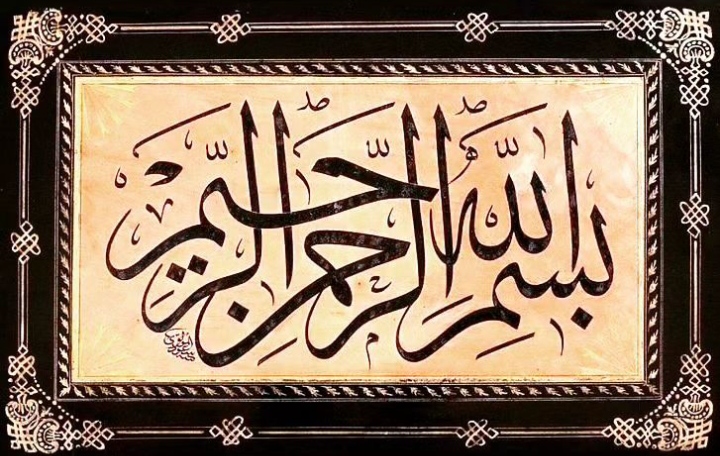 باسم الله الرحمن الرحيم